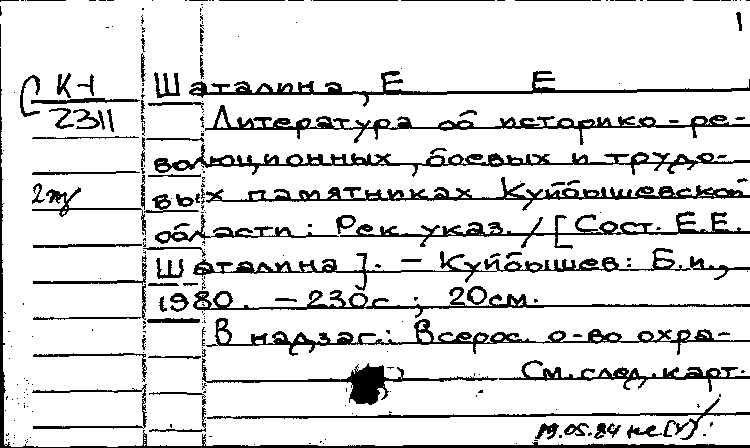 1
К-1
2311
2 экз
Шаталина, Е Е
Литература об историко-ре-
волюционных, боевых и трудо-
вых памятниках Куйбышевской
области: Рек. указ. / [Сост. Е.Е.
Шаталина]. - Куйбышев: Б.и.,
1980. - 230с.; 20см.
В надзаг.: Всерос. о-во охра-
См. след. карт.
19.05.84